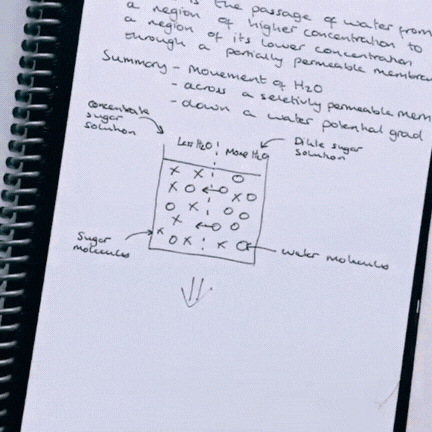 is the passage of water from
a region of higher concentration to
a region of its lower concentration
through a partially permeable membra
Summary - Movement of H2O
- across a seletivly permeable mem
- down a water potential grad
Concentrate
sugar
solution
Less H2O
More H2O
Dilute sugar
solution
Sugar
molecules
water molecules